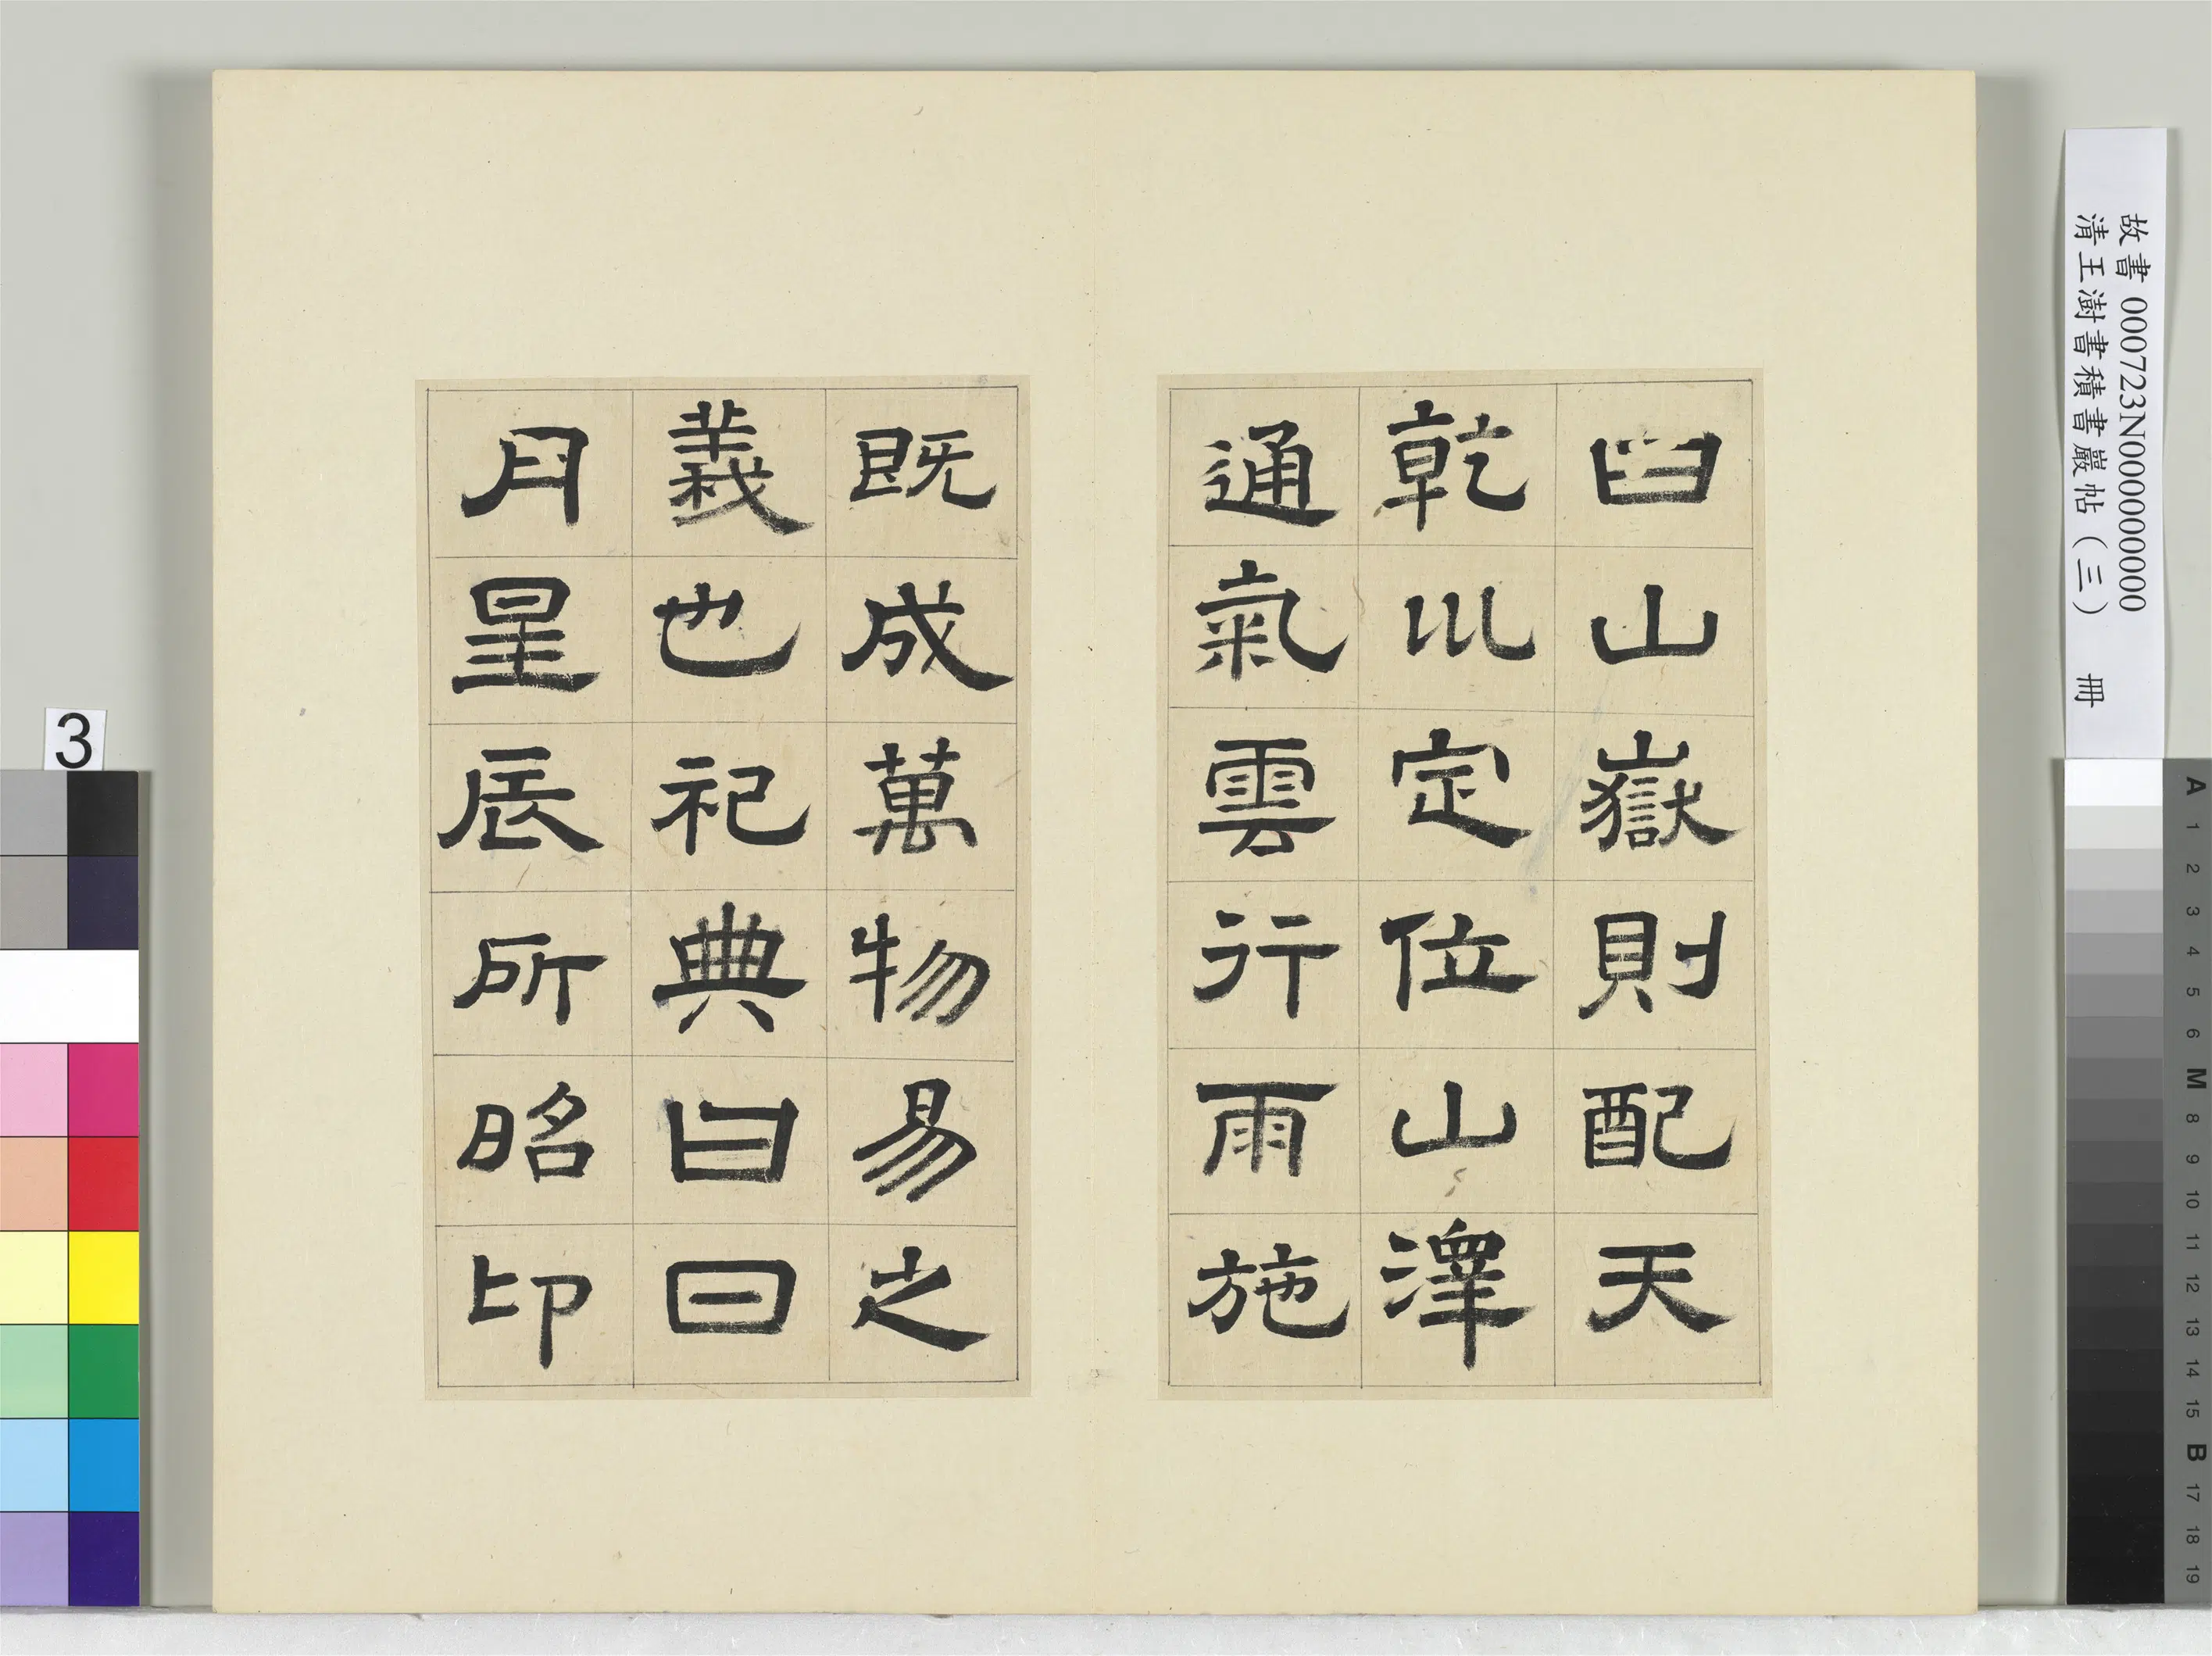 曰山嶽則配天
乾巛定位山澤
通氣雲行雨施
既成萬物易之
義也祀典曰日
月星辰所昭卬
故書 000723N000000000
清王澍書積書巖帖（三） 冊
3
A 1 2 3 4 5 6 M 8 9 10 11 12 13 14 15 B 17 18 19